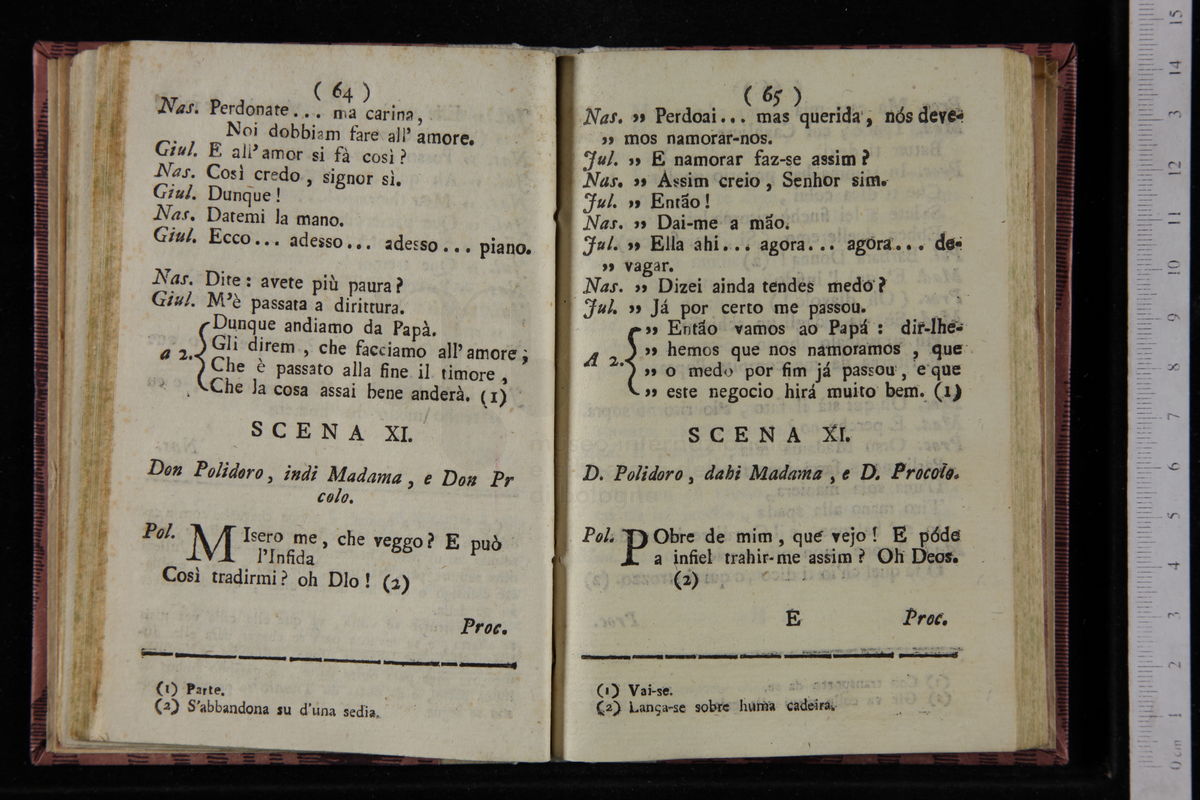 ( 64 )
Nas. Perdonate... ma carina,
Noi dobbiam fare all' amore.
Giul. E all'amor si fà così?
Nas. Così credo, signor sì.
Giul. Dunque!
Nas. Datemi la mano.
Giul. Ecco... adesso... adesso... piano.
Nas. Dite: avete più paura?
Giul. M'è passata a dirittura.
Dunque andiamo da Papà.
a 2. Gli direm, che facciamo all'amore;
Che è passato alla fine il timore,
Che la cosa assai bene anderà. (1)
SCENA XI.
Don Polidoro, indi Madama, e Don Pr
colo.
Pol. MIsero me, che veggo? E può
l'Infida
Così tradirmi? oh DIo! (2)
Proc.
(1) Parte.
(2) S'abbandona su d'una sedia.
( 65 )
Nas. „ Perdoai... mas querida, nós deve-
„ mos namorar-nos.
Jul. „ E namorar faz-se assim?
Nas. „ Assim creio, Senhor sim.
Jul. „ Então!
Nas. „ Dai-me a mão.
Jul. „ Ella ahi... agora... agora... de-
„ vagar.
Nas. „ Dizei ainda tendes medo?
Jul. „ Já por certo me passou.
„ Então vamos ao Papá: dir-lhe-
A 2. „ hemos que nos namoramos, que
„ o medo por fim já passou, e que
„ este negocio hirá muito bem. (1)
SCENA XI.
D. Polidoro, dahi Madama, e D. Procolo.
Pol. PObre de mim, que vejo! E póde
a infiel trahir-me assim? Oh Deos.
(2)
E Proc.
(1) Vai-se.
(2) Lança-se sobre huma cadeira.
0 cm 1 2 3 4 5 6 7 8 9 10 11 12 13 14 15